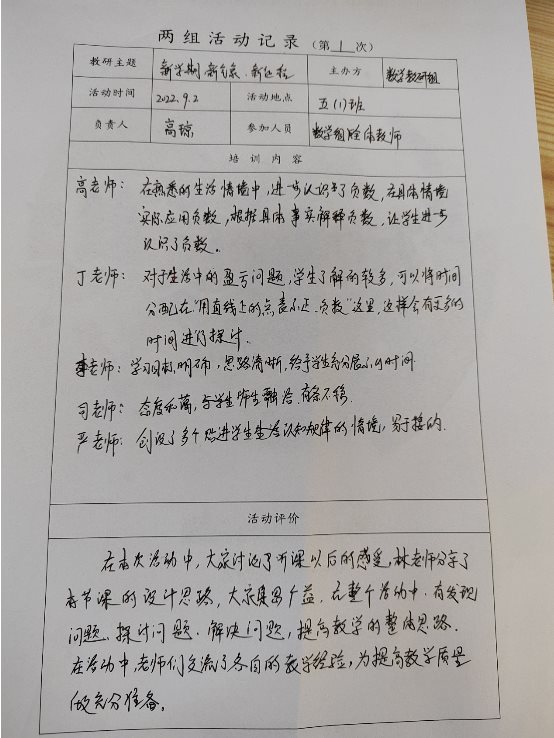 两组活动记录（第1次）
教研主题 新学期.新气象.新征程 主办方 数学教研组
活动时间 2022.9.2 活动地点 五(1)班
负责人 高琼 参加人员 数学组全体教师
培训内容
高老师：在熟悉的生活情境中，进一步认识了负数，在具体情境
实际应用负数，根据具体事实解释负数，让学生进一步
认识了负数。
丁老师：对于生活中的盈亏问题，学生了解的较多，可以将时间
分配在"用直线上的点表示正.负数"这里，这样会有更多的
时间进行探讨.
李老师：学习目标明确，思路清晰，给予学生充分展示的时间.
司老师：态度和蔼，与学生师生融洽.
严老师：创设了多个贴近学生生活认知规律的情境，易于接
活动评价
在本次活动中，大家讨论了听课以后的感受，林老师分享了
本节课的设计思路，大家集思广益.在整个活动中.有发现
问题、探讨问题、解决问题，提高教学的整体思路.
在活动中，老师们交流了各自的教学经验，为提高教学质量
做充分准备。